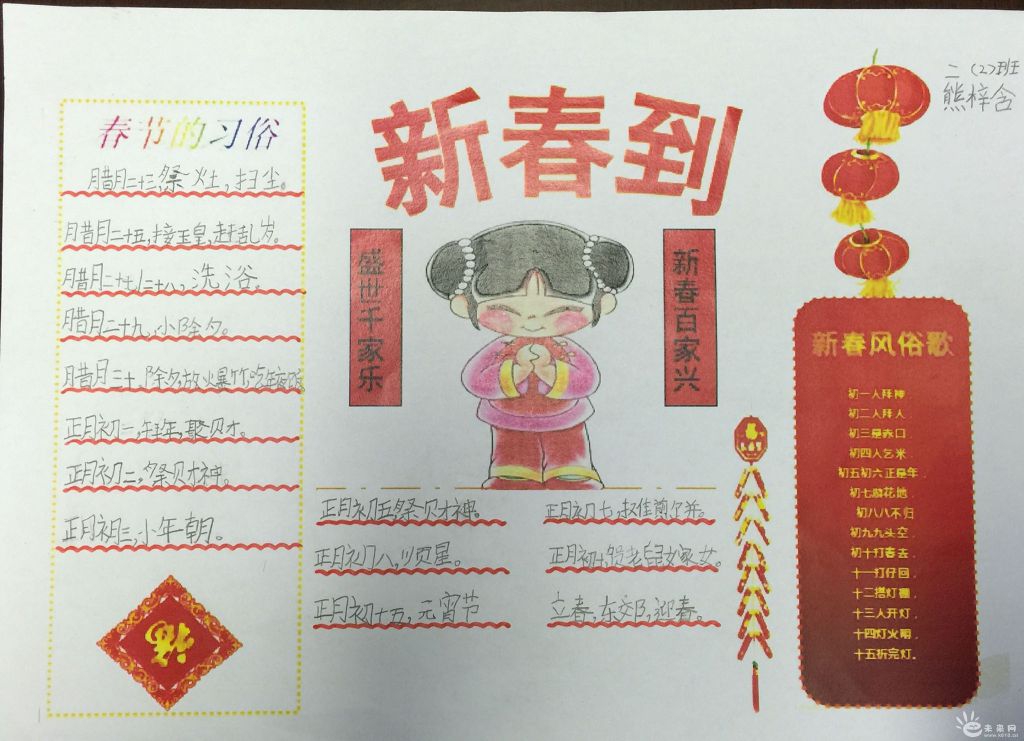 二（2）班
熊梓含
新春到
春节的习俗
腊月二十三祭灶，扫尘。
腊月二十五，接玉皇，赶乱岁。
腊月二十七/二十八，洗浴。
腊月二十九，小除夕。
腊月三十，除夕放火爆竹吃年夜饭
正月初一，拜年，聚财。
正月初二，祭财神。
正月初三，小年朝。
福
盛世千家乐
新春百家兴
正月初五，祭财神。
正月初八，顺星。
正月初十五，元宵节
正月初七，
正月初十，贺老鼠嫁女。
立春，东郊，迎春。
新春风俗歌
初一人拜神.
初二人拜人.
初三是赤口.
初四人乞米.
初五初六正是年.
初七嬲花地.
初八八不归
初九九头空.
初十打春去.
十一打仔回.
十二搭灯棚.
十三人开灯.
十四灯火明.
十五折完灯。
未来网
www.k618.cn